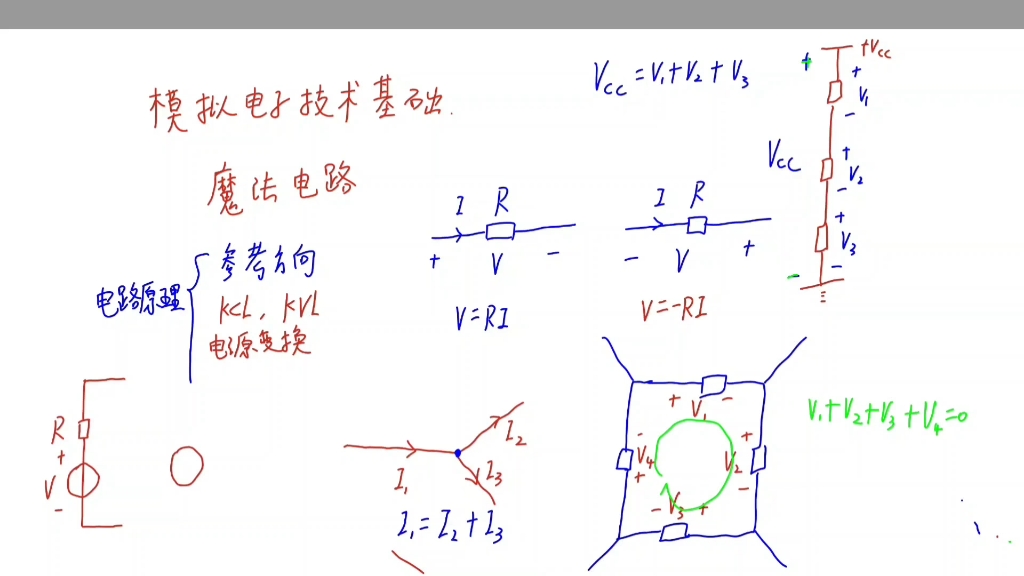 模拟电子技术基础.
魔法电路
电路原理
参考方向
KCL, KVL
电源变换
Vcc = V₁ + V₂ + V₃
+Vcc
+ V₁ -
Vcc
+ V₂ -
+ V₃ -
+
-
I R
+ V -
V = RI
I R
- V +
V = -RI
R
+
V
-
I₁
I₂
I₃
I₁ = I₂ + I₃
+ V₁ -
+ V₂ -
- V₃ +
- V₄ +
V₁ + V₂ + V₃ + V₄ = 0